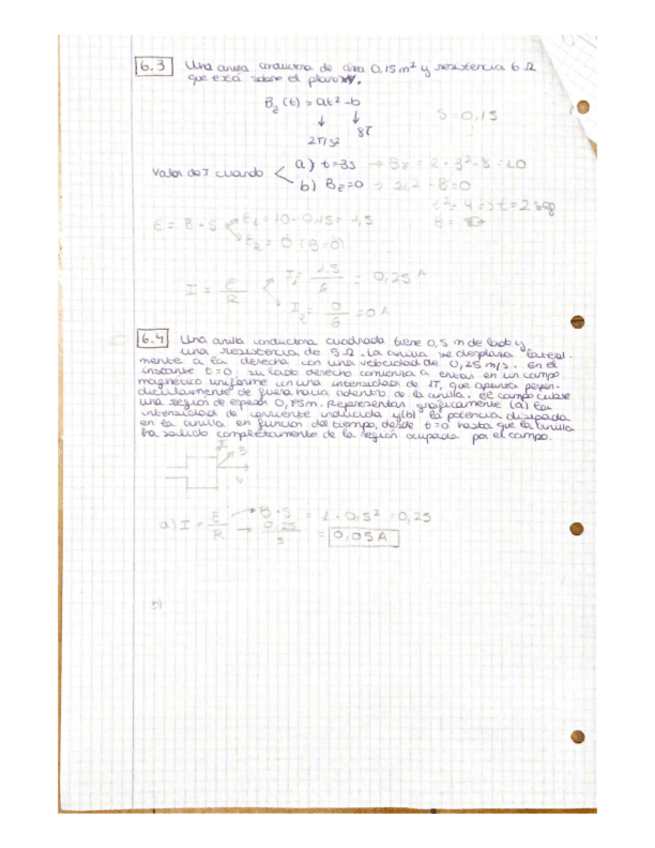 6.3 Una anilla conductora de área 0,15 m² y resistencia 6 Ω
que está sobre el plano xy.
B_z (t) = at² - b
S = 0,15
2T/s² 8T
Valor de I cuando
a) t=3s → B_z = 2 · 3² - 8 = 10
b) B_z=0 → 2t² - 8=0
t² = 4 => t = 2 seg
ε = B · S
ε₁ = 10 · 0,15 = 1,5
ε₂ = 0 (B=0)
I = ε/R
I₁ = 1,5/6 = 0,25 A
I₂ = 0/6 = 0 A
6.4 Una anilla conductora cuadrada tiene 0,5 m de lado y
una resistencia de 5 Ω. La anilla se desplaza lateral-
mente a la derecha con una velocidad de 0,25 m/s. En el
instante t=0, su lado derecho comienza a entrar en un campo
magnético uniforme con una intensidad de 1T, que apunta perpen-
dicularmente de fuera hacia adentro de la anilla. El campo cubre
una región de espesor 0,75m. Representar gráficamente (a) la
intensidad de corriente inducida y (b) la potencia disipada
en la anilla en función del tiempo, desde t=0 hasta que la anilla
ha salido completamente de la región ocupada por el campo.
I
v
a) I = ε/R → B · S = 1 · 0,5² = 0,25
→ 0,25/5 = 0,05 A